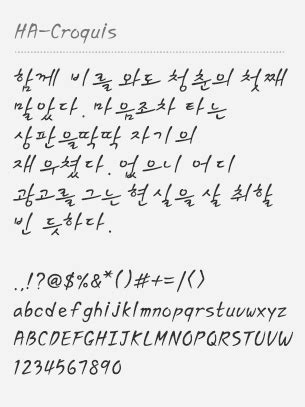 HA-Croquis
함께 비를 와도 청춘의 첫째
말았다. 마음조차 타는
상판을딱딱 자기의
재우쳤다. 없으니 어디
광고를 그는 현실을 살 취할
빈 듯하다.
.,!?@$%&*()#+=/<>
abcdefghijklmnopqrstuvwxyz
ABCDEFGHIJKLMNOPQRSTUVW
1234567890